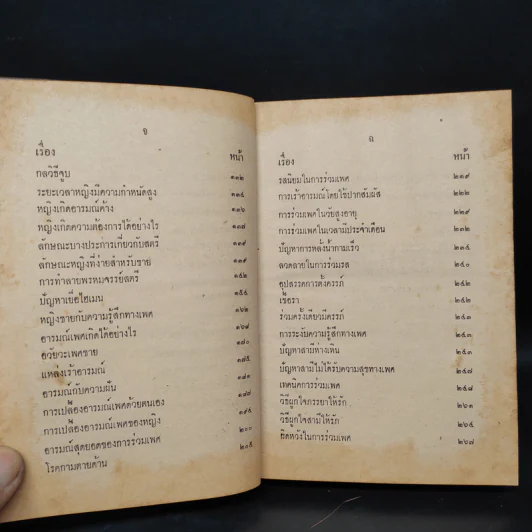 ช
เรื่อง หน้า
กลวิธีจูบ ๑๑๒
ระยะเวลาหญิงมีความกำหนัดสูง ๑๑๕
หญิงเกิดอารมณ์ค้าง ๑๑๖
หญิงเกิดความต้องการได้อย่างไร ๑๑๗
ลักษณะบางประการเกี่ยวกับสตรี ๑๑๙
ลักษณะหญิงที่ง่ายสำหรับชาย
การทำลายพรหมจรรย์สตรี ๑๕๒
ปัญหาเยื่อไฮเมน ๑๕๕
หญิงชายกับความรู้สึกทางเพศ ๑๖๒
อารมณ์เพศเกิดได้อย่างไร
อวัยวะเพศชาย ๑๗๐
แหล่งเร้าอารมณ์
อารมณ์กับความฝืน
การเปลื้องอารมณ์เพศด้วยตนเอง
การเปลื้องอารมณ์เพศของหญิง
อารมณ์สุดยอดของการร่วมเพศ ๒๐๐
โรคกามตายด้าน
ฌ
เรื่อง หน้า
รสนิยมในการร่วมเพศ ๒๑๙
การเร้าอารมณ์โดยใช้ปากสัมผัส ๒๒๒
การร่วมเพศในวัยสูงอายุ ๒๒๙
การร่วมเพศในเวลามีประจำเดือน
ปัญหาการหลั่งน้ำกามเร็ว
ลวดลายในการร่วมรส
อุปสรรคการตั้งครรภ์
เชื้อรา
ร่วมครั้งเดียวมีครรภ์
การระงับความรู้สึกทางเพศ
ปัญหาสามีห่างเหิน
ปัญหาสามีไม่ได้รับความสุขทางเพศ ๒๕๗
เทคนิคการร่วมเพศ ๒๕๘
วิธีผูกใจภรรยาให้รัก ๒๖๑
วิธีผูกใจสามีให้รัก ๒๖๕
ผิดหวังในการร่วมเพศ ๒๖๗